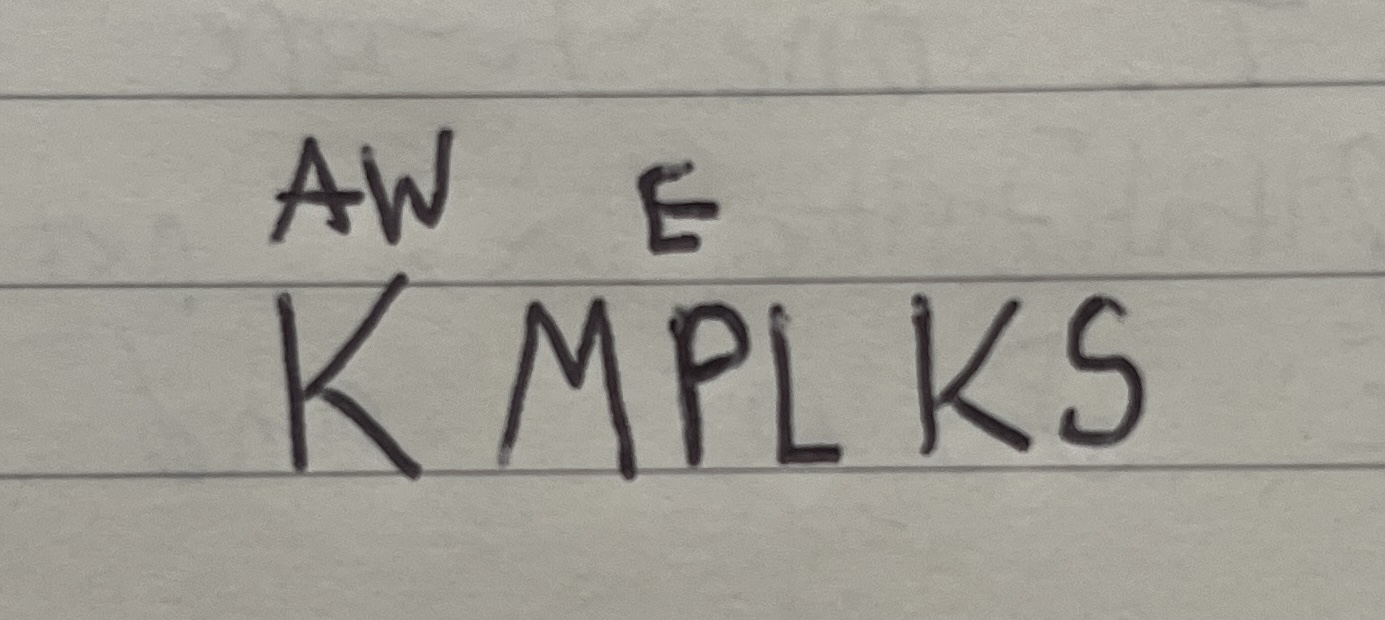 AW E
K MPL KS